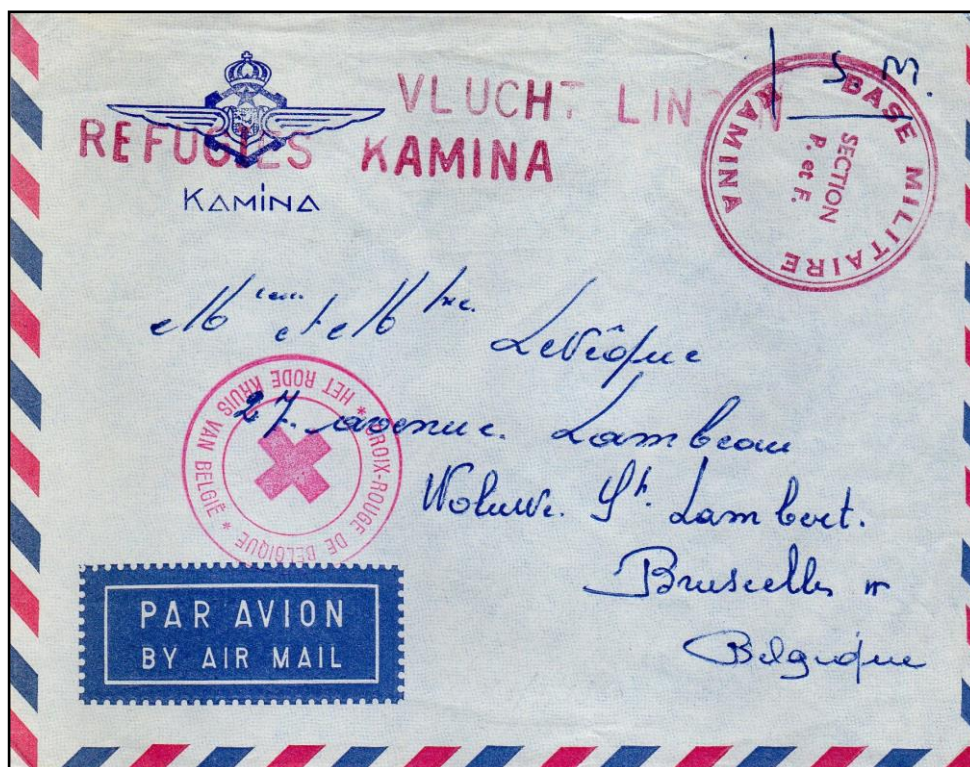 S M.
VLUCHTLINGEN
REFUGIES KAMINA
KAMINA
BASE MILITAIRE KAMINA
SECTION
P. et F.
Mieur et Mme Levêque
27. avenue. Lambeau
Woluwe. St. Lambert.
Bruxelles
Belgique
CROIX-ROUGE DE BELGIQUE * HET RODE KRUIS VAN BELGIË *
PAR AVION
BY AIR MAIL